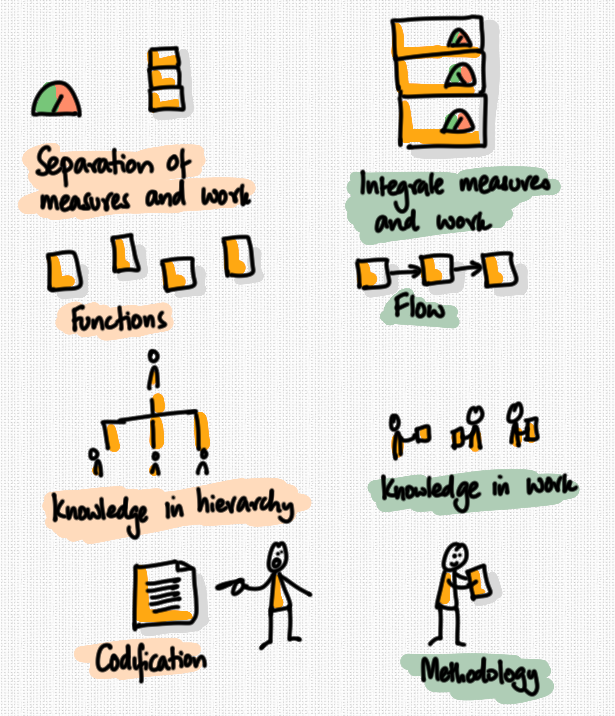 Separation of
measures and work
Integrale measures
and work
Functions
Flow
Knowledge in hierarchy
Knowledge in work
Codification
Methodology